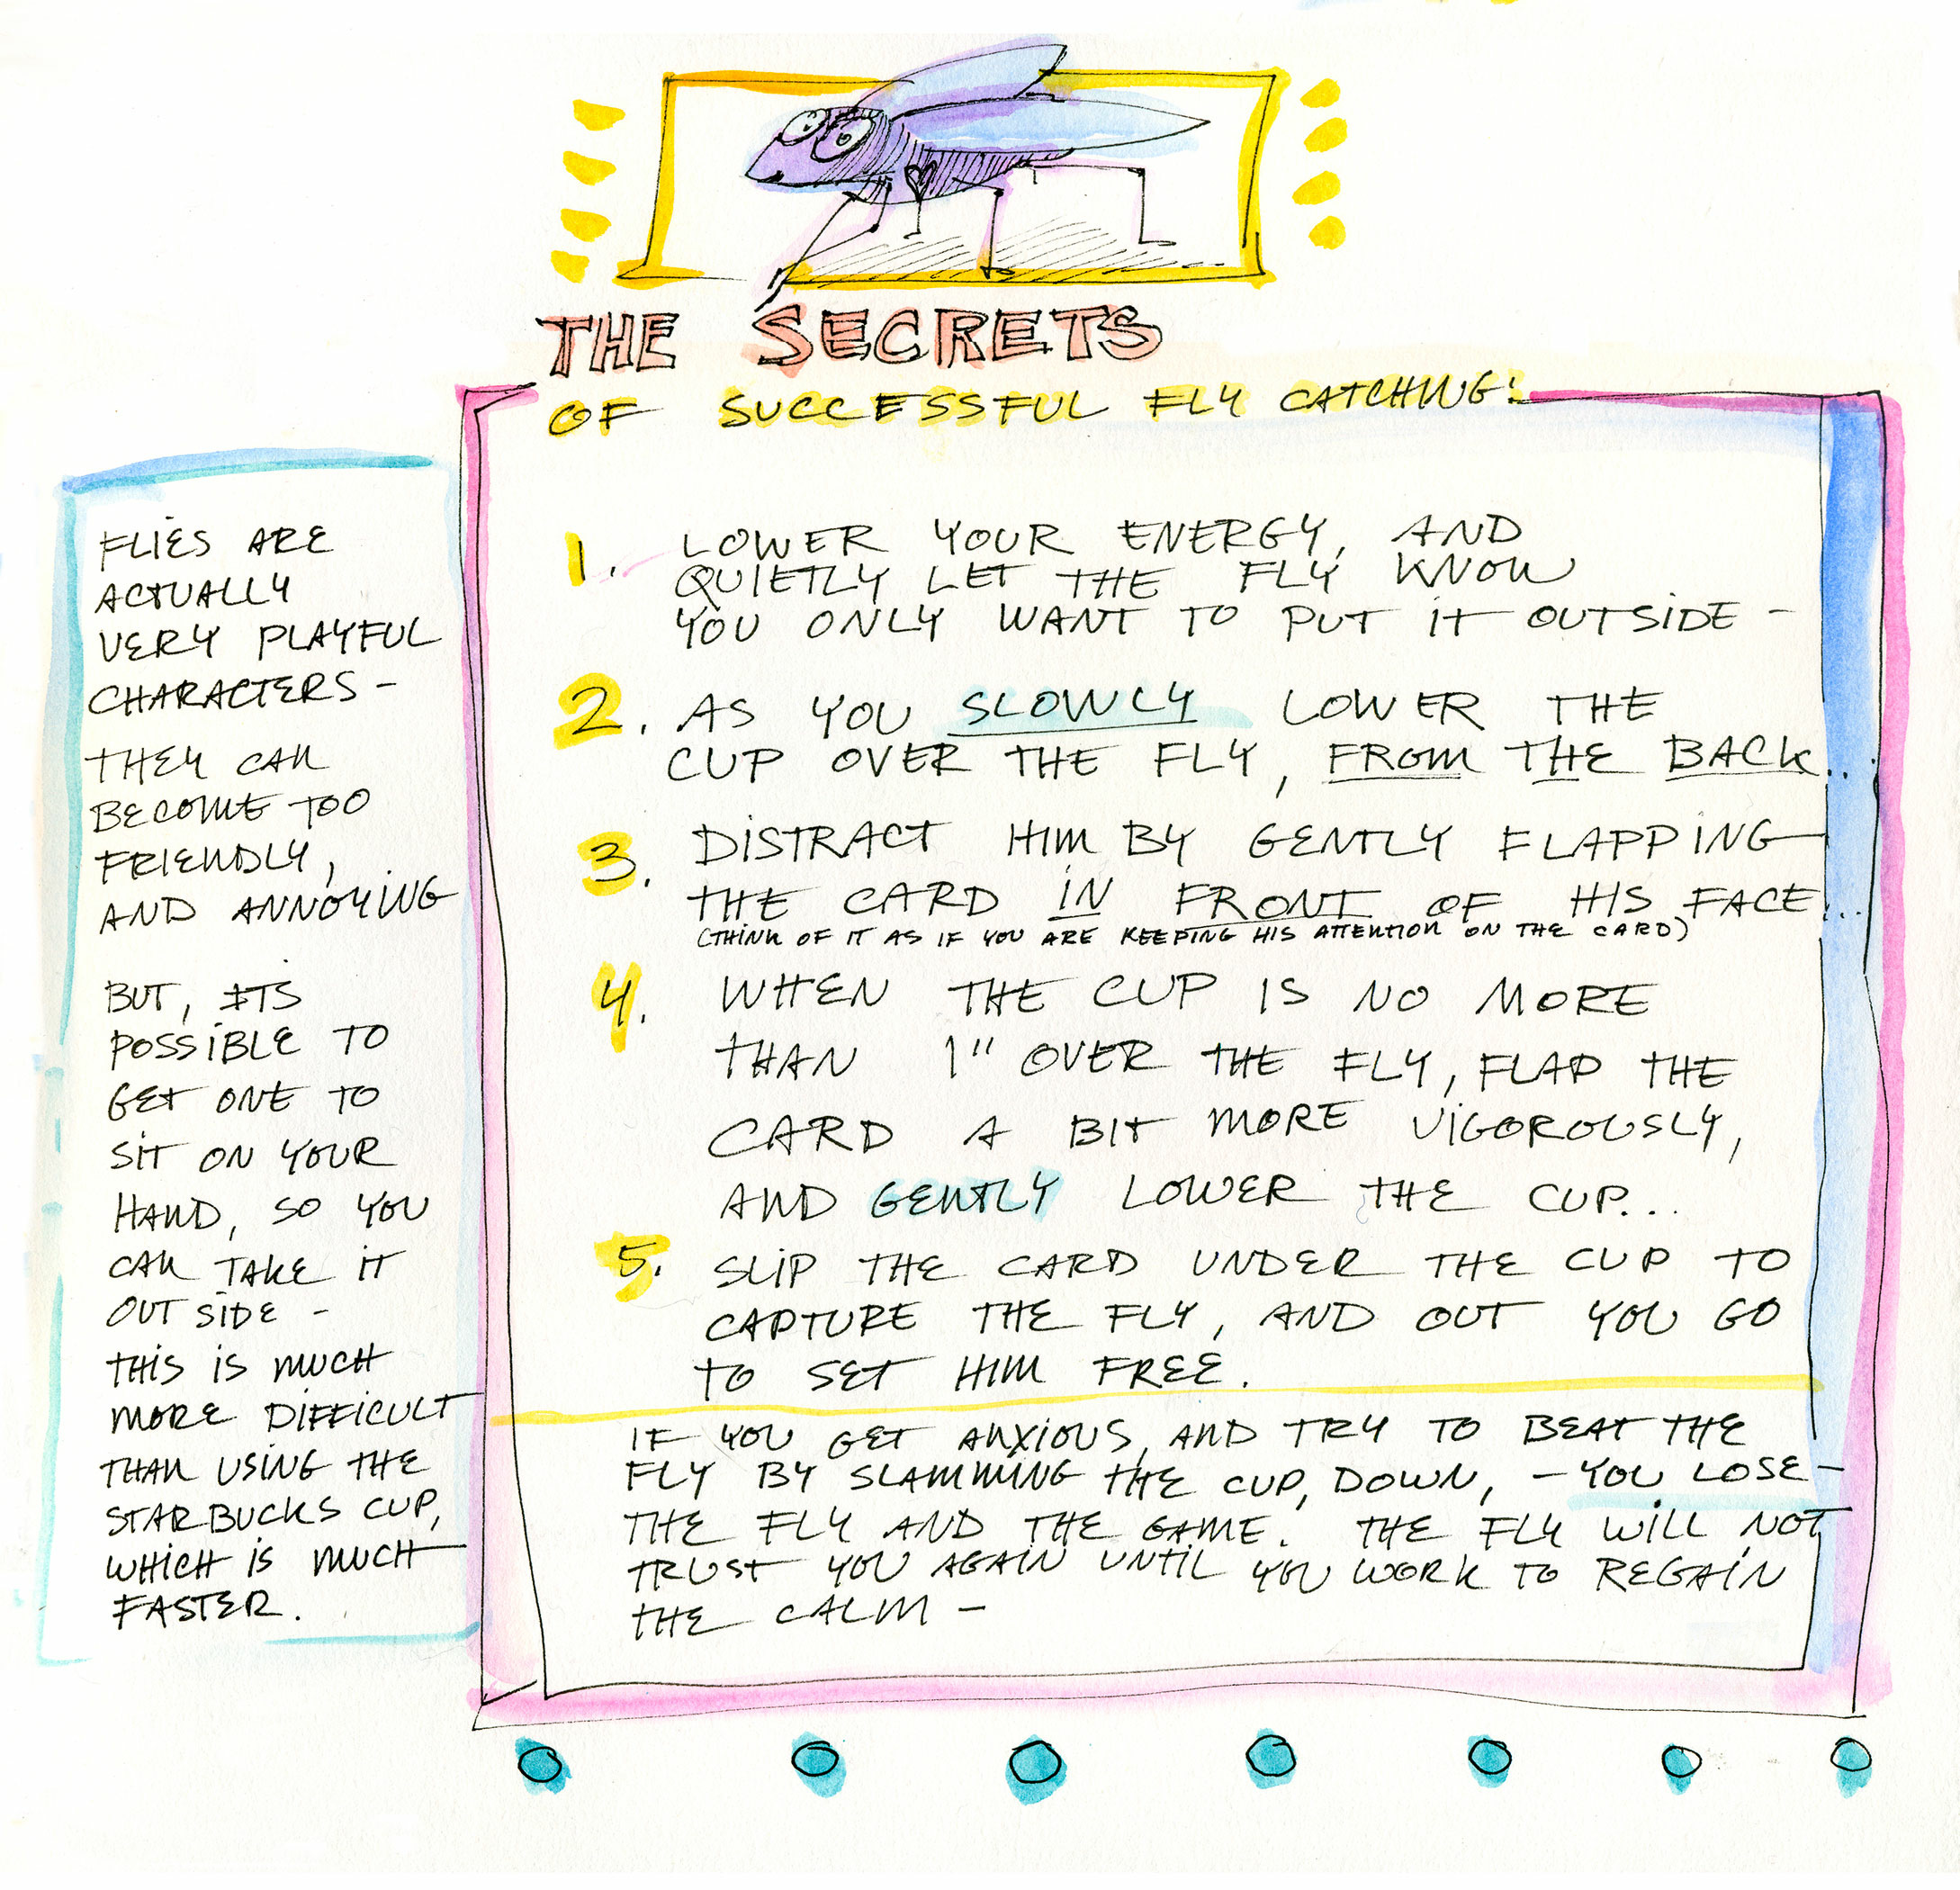 THE SECRETS
OF SUCCESSFUL FLY CATCHING:
FLIES ARE
ACTUALLY
VERY PLAYFUL
CHARACTERS -
THEY CAN
BECOME TOO
FRIENDLY,
AND ANNOYING
BUT, ITS
POSSIBLE TO
GET ONE TO
SIT ON YOUR
HAND, SO YOU
CAN TAKE IT
OUTSIDE -
THIS IS MUCH
MORE DIFFICULT
THAN USING THE
STARBUCKS CUP,
WHICH IS MUCH
FASTER.
1. LOWER YOUR ENERGY, AND
QUIETLY LET THE FLY KNOW
YOU ONLY WANT TO PUT IT OUTSIDE -
2. AS YOU SLOWLY LOWER THE
CUP OVER THE FLY, FROM THE BACK...
3. DISTRACT HIM BY GENTLY FLAPPING
THE CARD IN FRONT OF HIS FACE...
(THINK OF IT AS IF YOU ARE KEEPING HIS ATTENTION ON THE CARD)
4. WHEN THE CUP IS NO MORE
THAN 1" OVER THE FLY, FLAP THE
CARD A BIT MORE VIGOROUSLY,
AND GENTLY LOWER THE CUP...
5. SLIP THE CARD UNDER THE CUP TO
CAPTURE THE FLY, AND OUT YOU GO
TO SET HIM FREE.
IF YOU GET ANXIOUS, AND TRY TO BEAT THE
FLY BY SLAMMING THE CUP, DOWN, - YOU LOSE -
THE FLY AND THE GAME. THE FLY WILL NOT
TRUST YOU AGAIN UNTIL YOU WORK TO REGAIN
THE CALM -